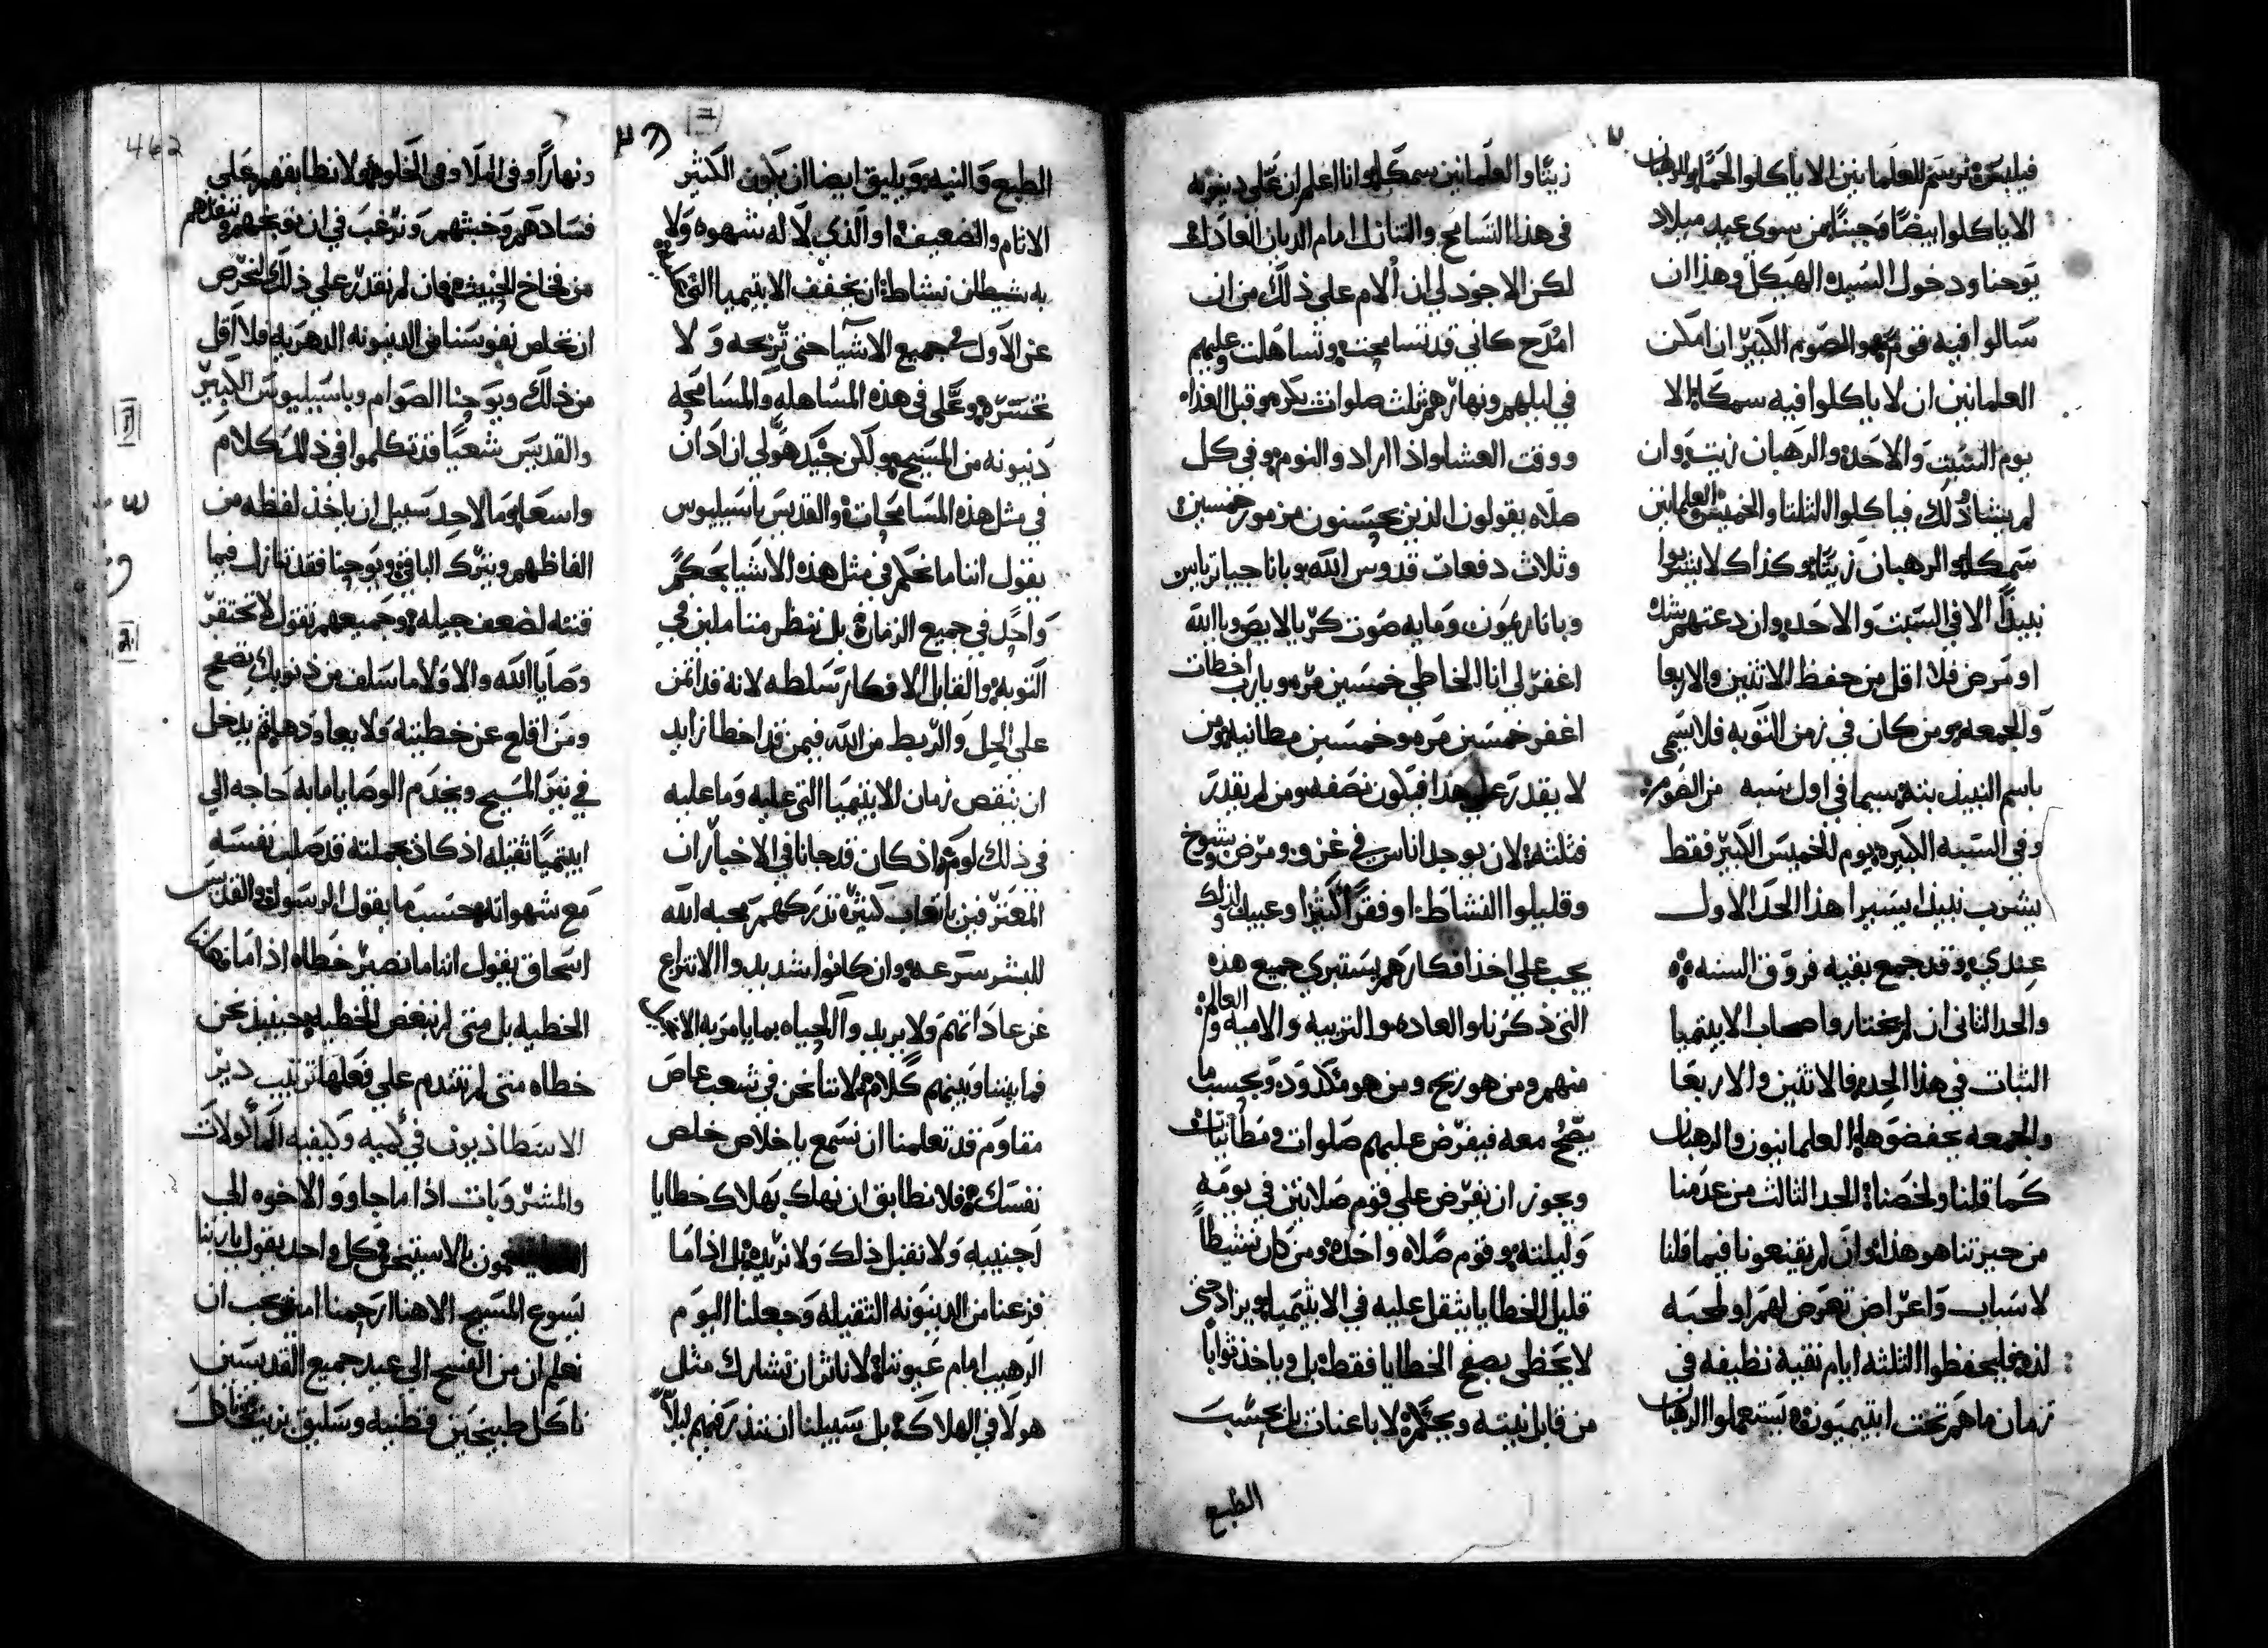 فيلبس ثم نرسم للعلمانيين الا ياكلوا لحمًا والرهبان
الا ياكلوا بيضًا وجبنًا من سوى عيد ميلاد
يوحنا ودخول السيده الهيكل وهذا ان
سالوا فيه قوم وهو الصوم الكبير ان امكن
العلمانين ان لا ياكلوا فيه سمكا الا
يوم السبت والاحد والرهبان زيت وان
لم يشا ذلك فياكلوا الثلثا والخميس العلمانين
سمكا والرهبان زيتًا وكذاك لا يشربوا
نبيذًا الا في السبت والاحد وان دعتهم شده
او مرض فلا اقل من حفظ الاثنين والاربعا
والجمعه ومن كان في زمن التوبه فلا يسمى
باسم النبيذ بته سيما في اول سبه من الصوم
وفي السبه الكبيره يوم الخميس الكبير فقط
يشرب نبيذا يسيرا هذا الحد الاول
عندي وقد جمع بقيه فروق السنه
والحد الثاني ان لم يختاروا اصحاب الابيتيميا
الثبات في هذا الحد فالاثنين والاربعا
والجمعه يحفضوها العلمانيون والرهبان
كما قلنا ولخصنا الحد الثالث من عدمنا
من حيرتنا هو هذا وان لم يقنعونا فيما قلنا
لاسباب واعراض تعرض لهم او لمحبه
لذه فليحفظوا الثلثه ايام نقيه نظيفه في
زمان ما هم تحت ابيتيميون يستعملوا الرهبان
زيتًا والعلمانين سمكا وانا اعلم ان على دينونه
في هذا التسامح والتنازل امام الديان العادل
لكن الاجود لي ان الام على ذلك من ان
امدح كاني قد تسامحت وتساهلت وعليهم
في ليلهم ونهارهم ثلث صلوات بكره وقبل الغذاه
ووقت العشا واذا اراد والنوم وفي كل
صلاه يقولون الذين يحسنون مزمور خمسين
وثلاث دفعات قدوس الله وبانا جيا ترياس
وبانا ريمون ومايه صوت كرياليصون وبا الله
اغفر لي انا الخاطي خمسين مره ويارب اخطات
اغفر خمسين مره وخمسين مطانيه ومن
لا يقدر على هذا فيكون نصفه ومن لم يقدر
فثلثه لان يوجد اناس في غزو ومرض وشيوخ
وقليلوا النشاط او فقرا كثيرا وعبيد ولذلك
يجب على اخذ افكارهم يستبري جميع هذه
التي ذكرنا والعاده والتربيه والاميه والعالم
منهم ومن هو ريح ومن هو مكدود وبحسب ما
يصح معه فيفرض عليهم صلوات ومطانيات
ويجوز ان يفرض على قوم صلاتين في يومه
وليلته وقوم صلاه واحده ومن كان نشيطًا
قليل الخطايا يثقل عليه في الابيتيميا ويزاد حتى
لا يحظى بصفح الخطايا فقط بل وياخذ ثوابا
من قابل نيته وبحكمه لا باعنات بل بحسب
الطبع
الطبع والنيه ويليق ايضا ان يكون الكثير
الاثام والضعيف او الذي لا له شهوه ولا
به شيطان نشاط ان يخفف الابيتيميا التي
عن الاول في جميع الاشيا حتى تربحه ولا
تخسره وعلى في هذه المساهله والمسامحه
دينونه من المسيح ولكن جيد هو لي ان ادان
في مثل هذه المسامحات والقديس باسيليوس
يقول اننا ما نحكم في مثل هذه الاشيا بحكم
واحد في جميع الزمان بل ننظر متاملين في
التوبه والقابل الافكار تسلطه لانه قد اتمن
على الحل والربط من الله فيمن قد اخطا زايد
ان ينقص زمان الابيتيميا التي عليه وما عليه
في ذلك لوم اذ كان قد جانا في الاخبار ان
المعترفين باتعاب كثيره تدركهم محبه الله
للبشر سرعه وان كانوا شديدوا الانتزاع
عن عاداتهم ولا يريد والحياه بما يامر به الانجيل
فما بيننا وبينهم كلام لاننا نحن في شعب عاص
مقاوم قد تعلمنا ان نسمع باخلاص خلص
نفسك فلا نطابق ان نهلك بهلاك خطايا
اجنبيه ولا نقبل ذلك ولا نريده بل اذا ما
فزعنا من الدينونه الثقيله وجعلنا اليوم
الرهيب امام عيوننا لا نوثر ان نشارك مثل
هولا في الهلاك بل سبيلنا ان ننذرهم ليلاً
ونهارًا وفي الملا وفي الخلوه ولا نطابقهم على
فسادهم وخبثهم ونرغب في ان نوبخهم وننقذهم
من فخاخ الخبيث فان لم نقدر على ذلك نحرص
ان نخلص نفوسنا من الدينونه الدهريه فلا اقل
من ذلك ويوحنا الصوام وباسيليوس الكبير
والقديس شعيا قد تكلموا في ذلك كلام
واسعا وما لاحد سبيل ان ياخذ لفظه من
الفاظهم ويترك الباقي ويوحنا فقد تنازل فيما
فننه لضعف جيله وجميعهم نقول لا تحتقر
وصايا الله والا فلا ما سلف من ذنوبك يصفح
ومن اقلع عن خطيته فلا يعاودها ثم يدخل
في نير المسيح ويخدم الوصايا ما به حاجه الى
ابيتيميا ثقيله اذ كان بجملته قد صلب نفسه
مع شهواته بحسب ما يقول الرسول والقديس
اسحاق يقول اننا ما نصير خطاه اذا ما
الخطيه بل متى لم نبغض الخطيه حينيذ نحن
خطاه متى لم نندم على فعلها ترتيب دير
الاسطاذيون في كميه وكيفيه المأكولات
والمشروبات اذا ما جاووا الاخوه الى
بالاستيخن كل واحد يقول ياربنا
يسوع المسيح الاهنا ارحمنا امين يجب ان
نعلم ان من الفسح الى عيد جميع القديسين
ناكل طبيخين قطنيه وسليق بزيت
462